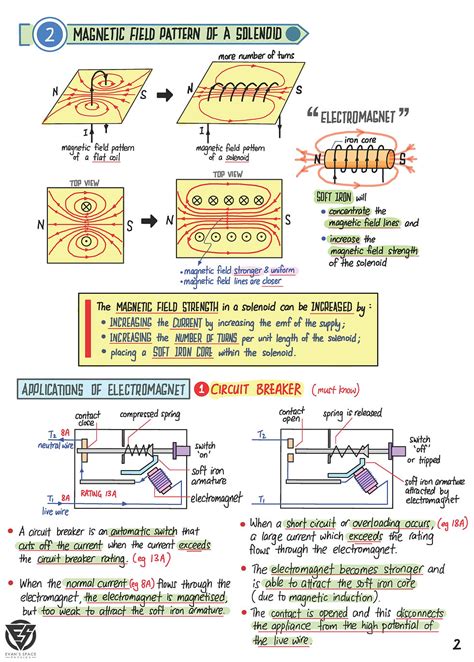 2 MAGNETIC FIELD PATTERN OF A SOLENOID
more number of turns
N S
N S
I I
I I
magnetic field pattern of a flat coil
magnetic field pattern of a solenoid
"ELECTROMAGNET"
iron core
N S
SOFT IRON will
• concentrate the magnetic field lines and
• increase the magnetic field strength of the solenoid
TOP VIEW
N S
TOP VIEW
N S
• magnetic field stronger & uniform
• magnetic field lines are closer
The MAGNETIC FIELD STRENGTH in a solenoid can be INCREASED by:
• INCREASING the CURRENT by increasing the emf of the supply;
• INCREASING the NUMBER OF TURNS per unit length of the solenoid;
• placing a SOFT IRON CORE within the solenoid.
APPLICATIONS OF ELECTROMAGNET
1 CIRCUIT BREAKER (must know)
contact close
compressed spring
T2 8A
neutral wire
switch 'on'
soft iron armature
RATING 13A
electromagnet
T1 8A
live wire
contact open
spring is released
T2
switch 'off' or tripped
soft iron armature attracted by electromagnet
T1
• A circuit breaker is an automatic switch that
cuts off the current when the current exceeds
the circuit breaker rating. (eg 13A)
• When the normal current (eg 8A) flows through the
electromagnet, the electromagnet is magnetised,
but too weak to attract the soft iron armature.
• When a short circuit or overloading occurs, (eg 18A)
a large current which exceeds the rating
flows through the electromagnet.
• The electromagnet becomes stronger and
is able to attract the soft iron core
(due to magnetic induction).
• The contact is opened and this disconnects
the appliance from the high potential of
the live wire.
EVAN'S SPACE
2